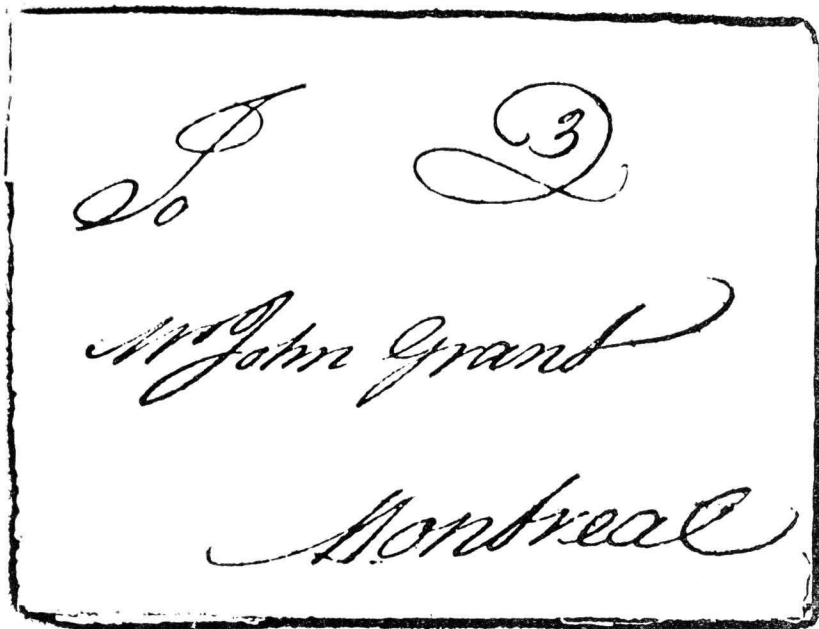 To 3
Mr John Grant
Montreal